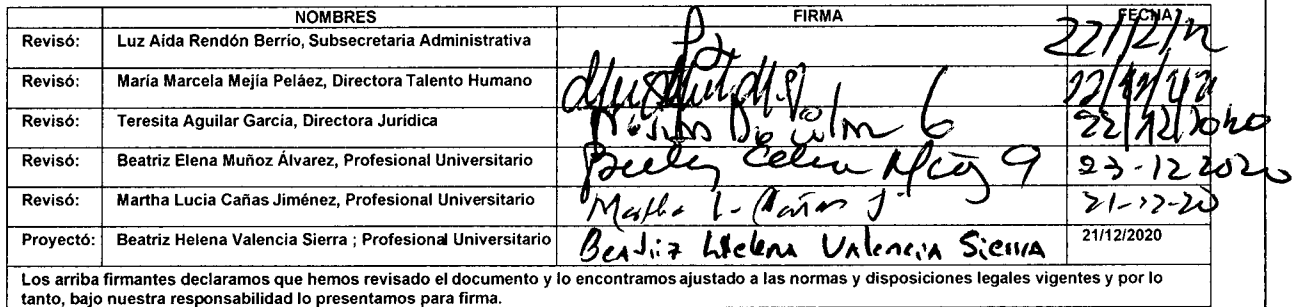 NOMBRES FIRMA FECHA
Revisó: Luz Aida Rendón Berrio, Subsecretaria Administrativa
Revisó: María Marcela Mejía Peláez, Directora Talento Humano
Revisó: Teresita Aguilar García, Directora Jurídica 22/12/2020
Revisó: Beatriz Elena Muñoz Álvarez, Profesional Universitario 23-12 2020
Revisó: Martha Lucia Cañas Jiménez, Profesional Universitario Martha L. Cañas J 21-12-20
Proyectó: Beatriz Helena Valencia Sierra ; Profesional Universitario Beatriz Helena Valencia Sierra 21/12/2020
Los arriba firmantes declaramos que hemos revisado el documento y lo encontramos ajustado a las normas y disposiciones legales vigentes y por lo
tanto, bajo nuestra responsabilidad lo presentamos para firma.